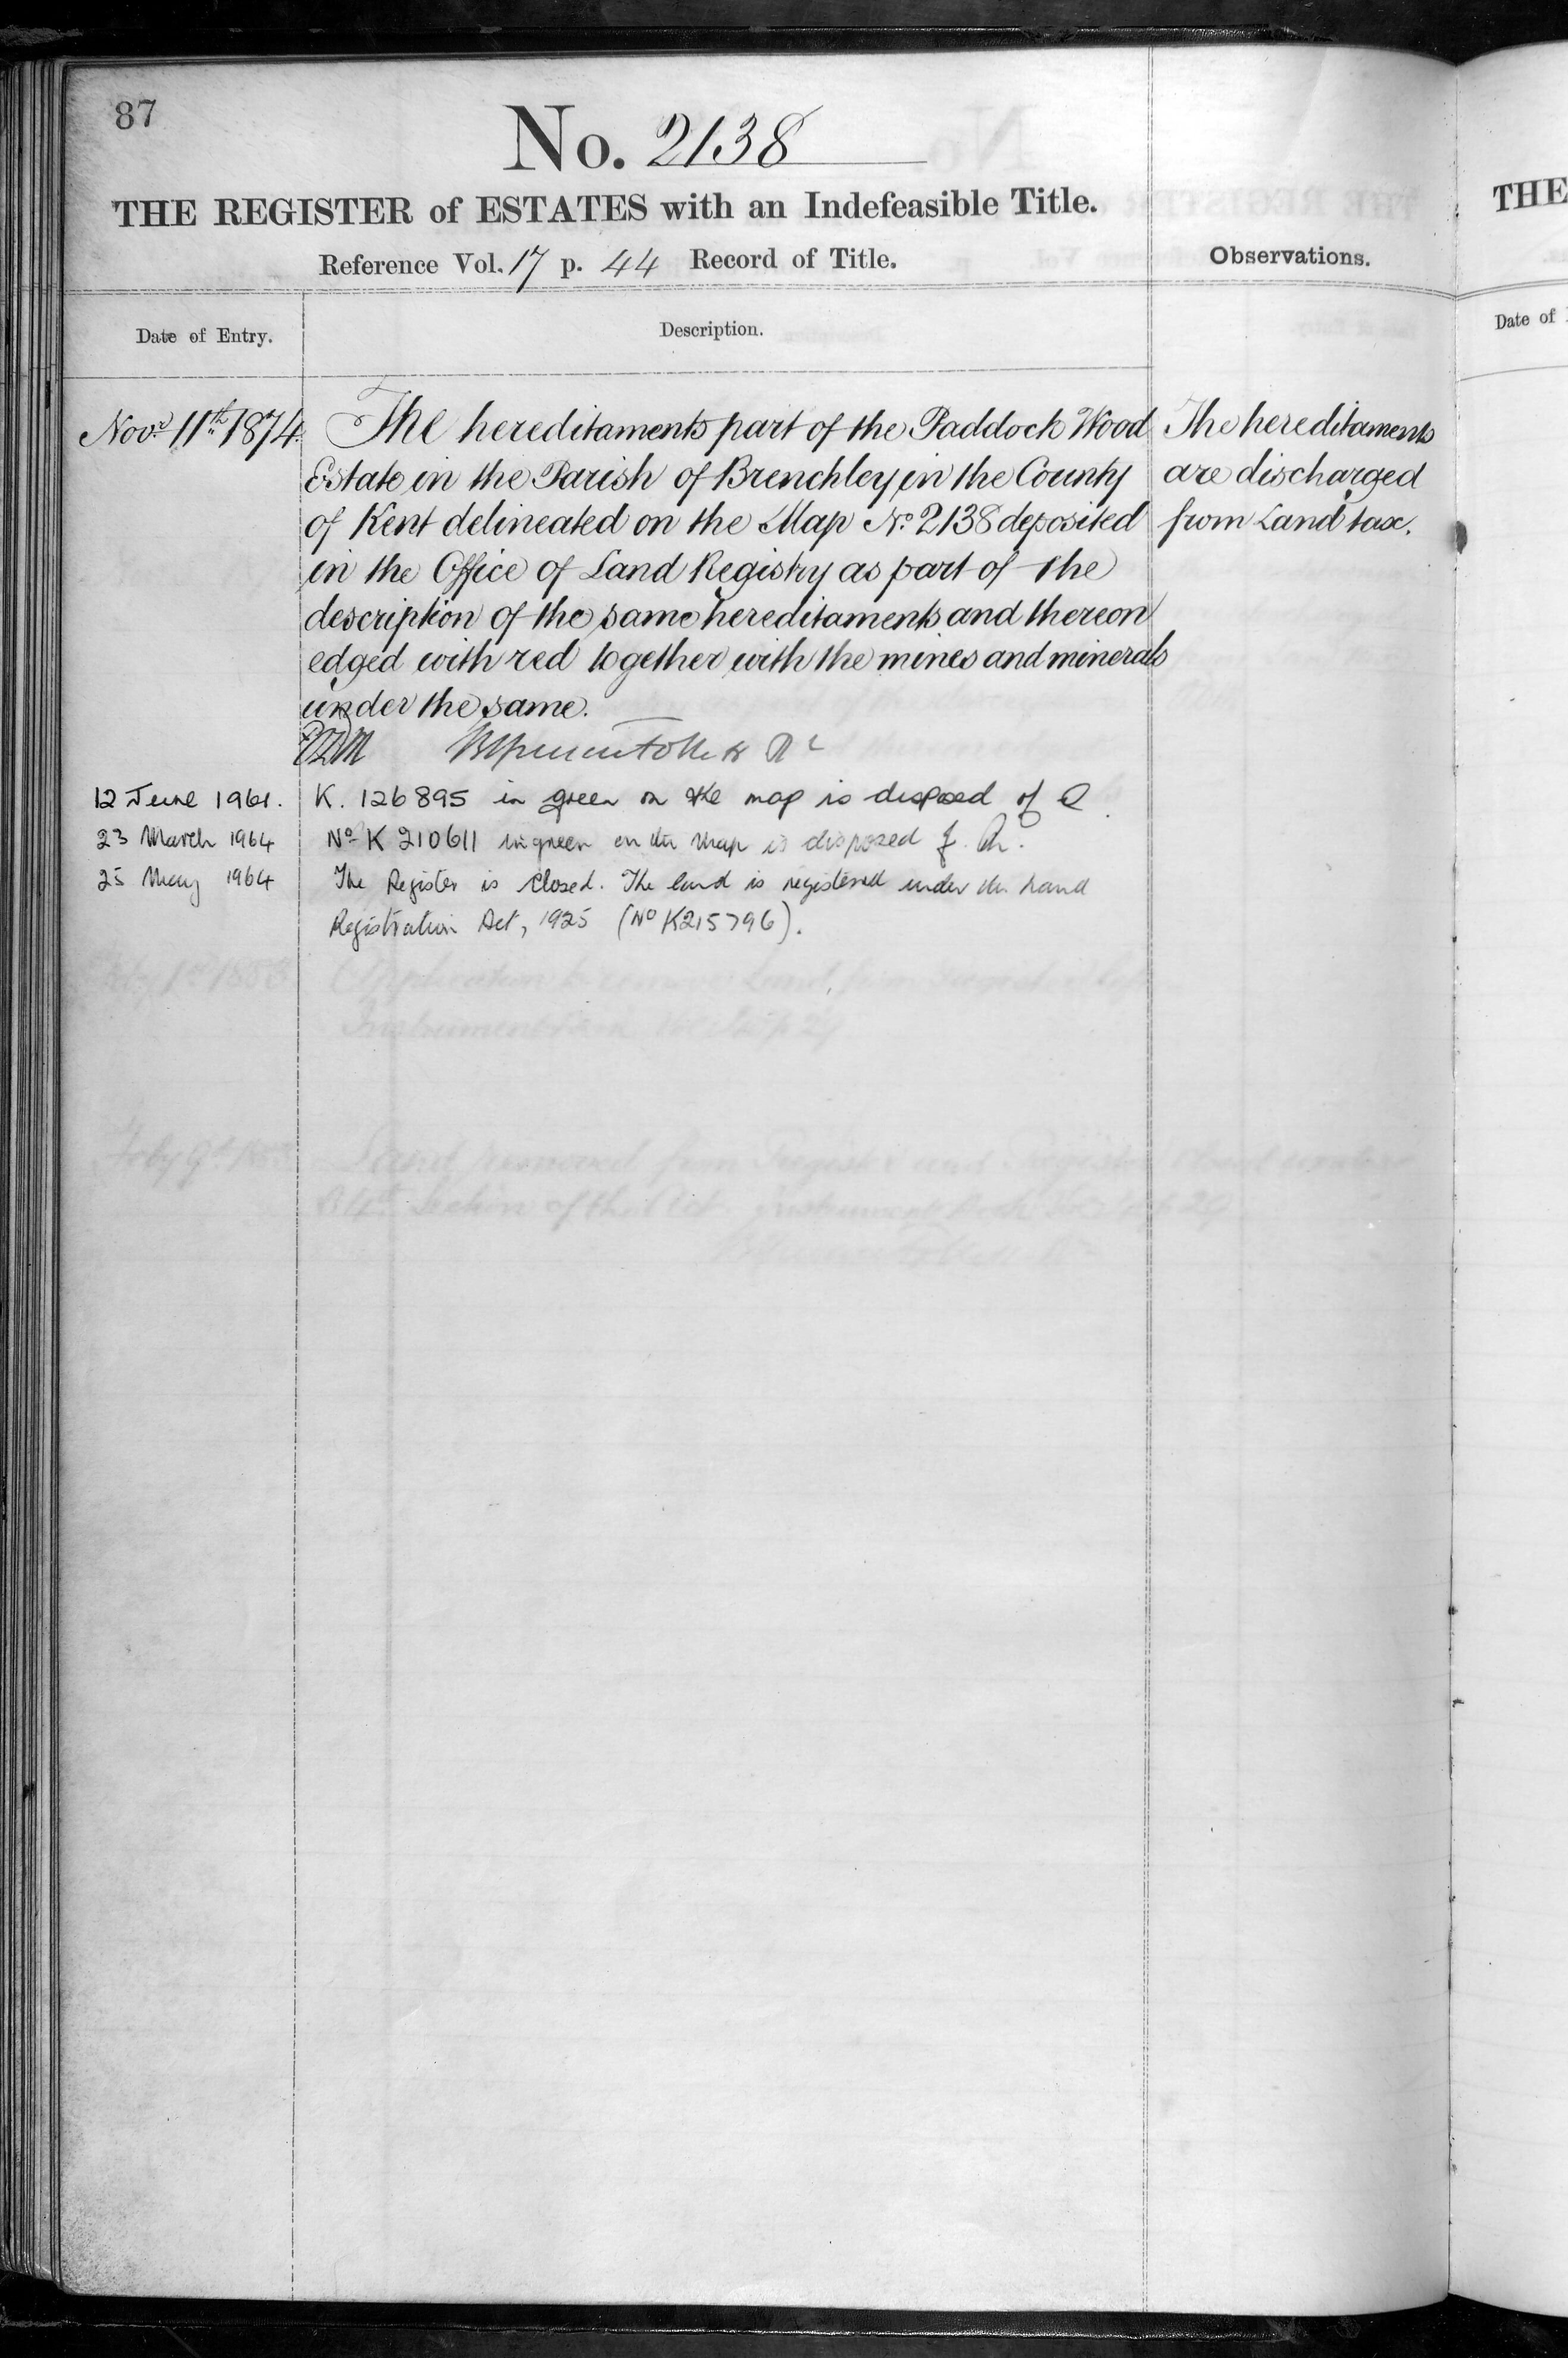 87
No. 2138
THE REGISTER of ESTATES with an Indefeasible Title.
Reference Vol. 17 p. 44 Record of Title.
Observations.
Date of Entry.
Description.
Novr. 11th 1874
The hereditaments part of the Paddock Wood
Estate in the Parish of Brenchley in the County
of Kent delineated on the Map No. 2138 deposited
in the Office of Land Registry as part of the
description of the same hereditaments and thereon
edged with red together with the mines and minerals
under the same.
The hereditaments
are discharged
from Land tax.
12 June 1961. K. 126895 in green on the map is disposed of
23 March 1964 No K 210611 in green on the map is disposed of.
25 May 1964 The Register is closed. The land is registered under the Land
Registration Act, 1925 (No K215796).
THE
Date of